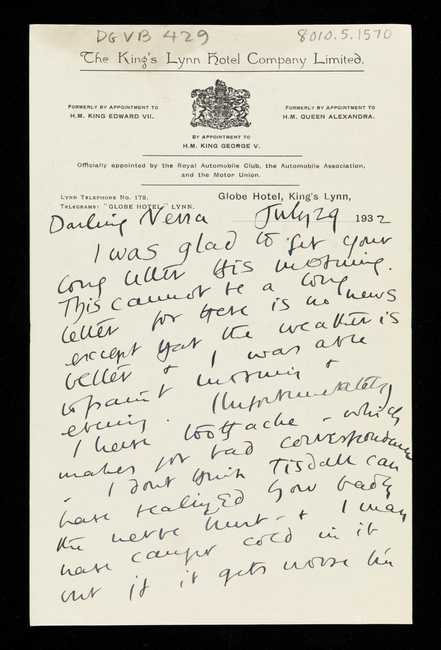 DGVB 429
8010.5.1570
The King's Lynn Hotel Company Limited.
FORMERLY BY APPOINTMENT TO
H.M. KING EDWARD VII.
FORMERLY BY APPOINTMENT TO
H.M. QUEEN ALEXANDRA.
BY APPOINTMENT TO
H.M. KING GEORGE V.
Officially appointed by the Royal Automobile Club, the Automobile Association,
and the Motor Union.
LYNN TELEPHONE NO. 173.
TELEGRAMS: "GLOBE HOTEL" LYNN.
Globe Hotel, King's Lynn,
July 29 1932
Darling Nessa
I was glad to get your
long letter this morning.
This cannot be a long
letter for there is no news
except that the weather is
better & I was able
to paint morning &
evening. Unfortunately
I have toothache - which
makes for bad correspondence
- I don't think Tisdall can
have realized how badly
the nerve hurt - & I may
have caught cold in it
but if it gets worse I'm